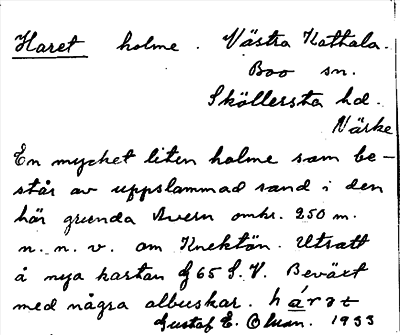 Haret holme. Västra Kathala.
Boo sn.
Sköllersta hd.
Närke
En mycket liten holme som be-
står av uppslammad sand i den
här grunda Avern omkr. 250 m.
n. n. v. om Knektön. Utsatt
å nya kartan g 65 S.V. Beväxt
med några albuskar. hárət
Gustaf E. Olsson. 1933